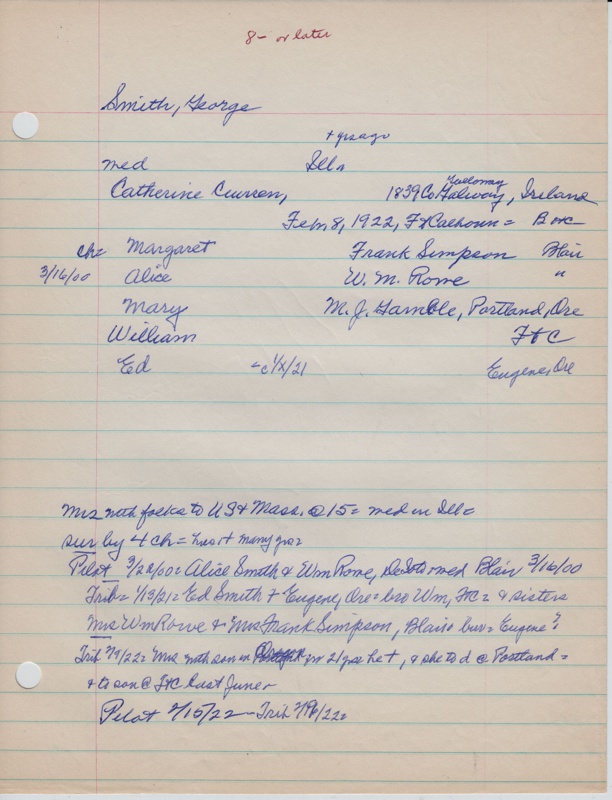 8- or later
Smith, George
+ yrs ago
med Ills
Galloway
Catherine Curren, 1839 Co Galway, Ireland
Feb 8, 1922, Ft Calhoun = B
ch= Margaret Frank Simpson Blair
3/16/00 Alice W. M. Rowe "
Mary M. J. Gamble, Portland, Ore
William Ft C
Ed 1/x/21 Eugene, Ore
Mrs with folks to US & Mass. @ 15 = med in Ill=
sur by 4 ch = many yrs
Pilot 3/20/00 = Alice Smith & Wm Rowe, DeSoto med Blair 3/16/00
Trib = 1/13/21 = Ed Smith + Eugene, Ore = bro Wm, Ft C = & sisters
Mrs Wm Rowe & Mrs Frank Simpson, Blair + bur = Eugene?
Trib 2/9/22 = Mrs with son in 21 yrs , & she to d @ Portland =
& to son @ Ft C last June
Pilot 2/15/22 - Trib 2/16/22=